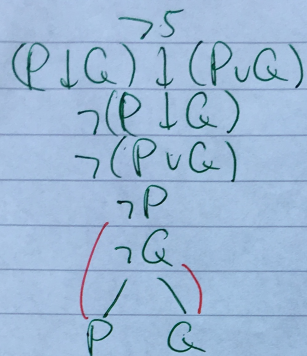 ¬5
(P↓Q) ↓ (P∨Q)
¬(P↓Q)
¬(P∨Q)
¬P
¬Q
P Q